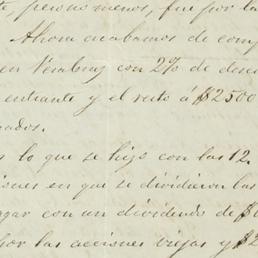 , perono menos, fué por la
Ahora acabamos de comp
en Veraluz con 2% de desc
entrante y el resto á $2500
ados.
lo que se hizo con las 12.
iones en que se dividieron las
gar con un dividendo de $
por las acciones viejas y $2